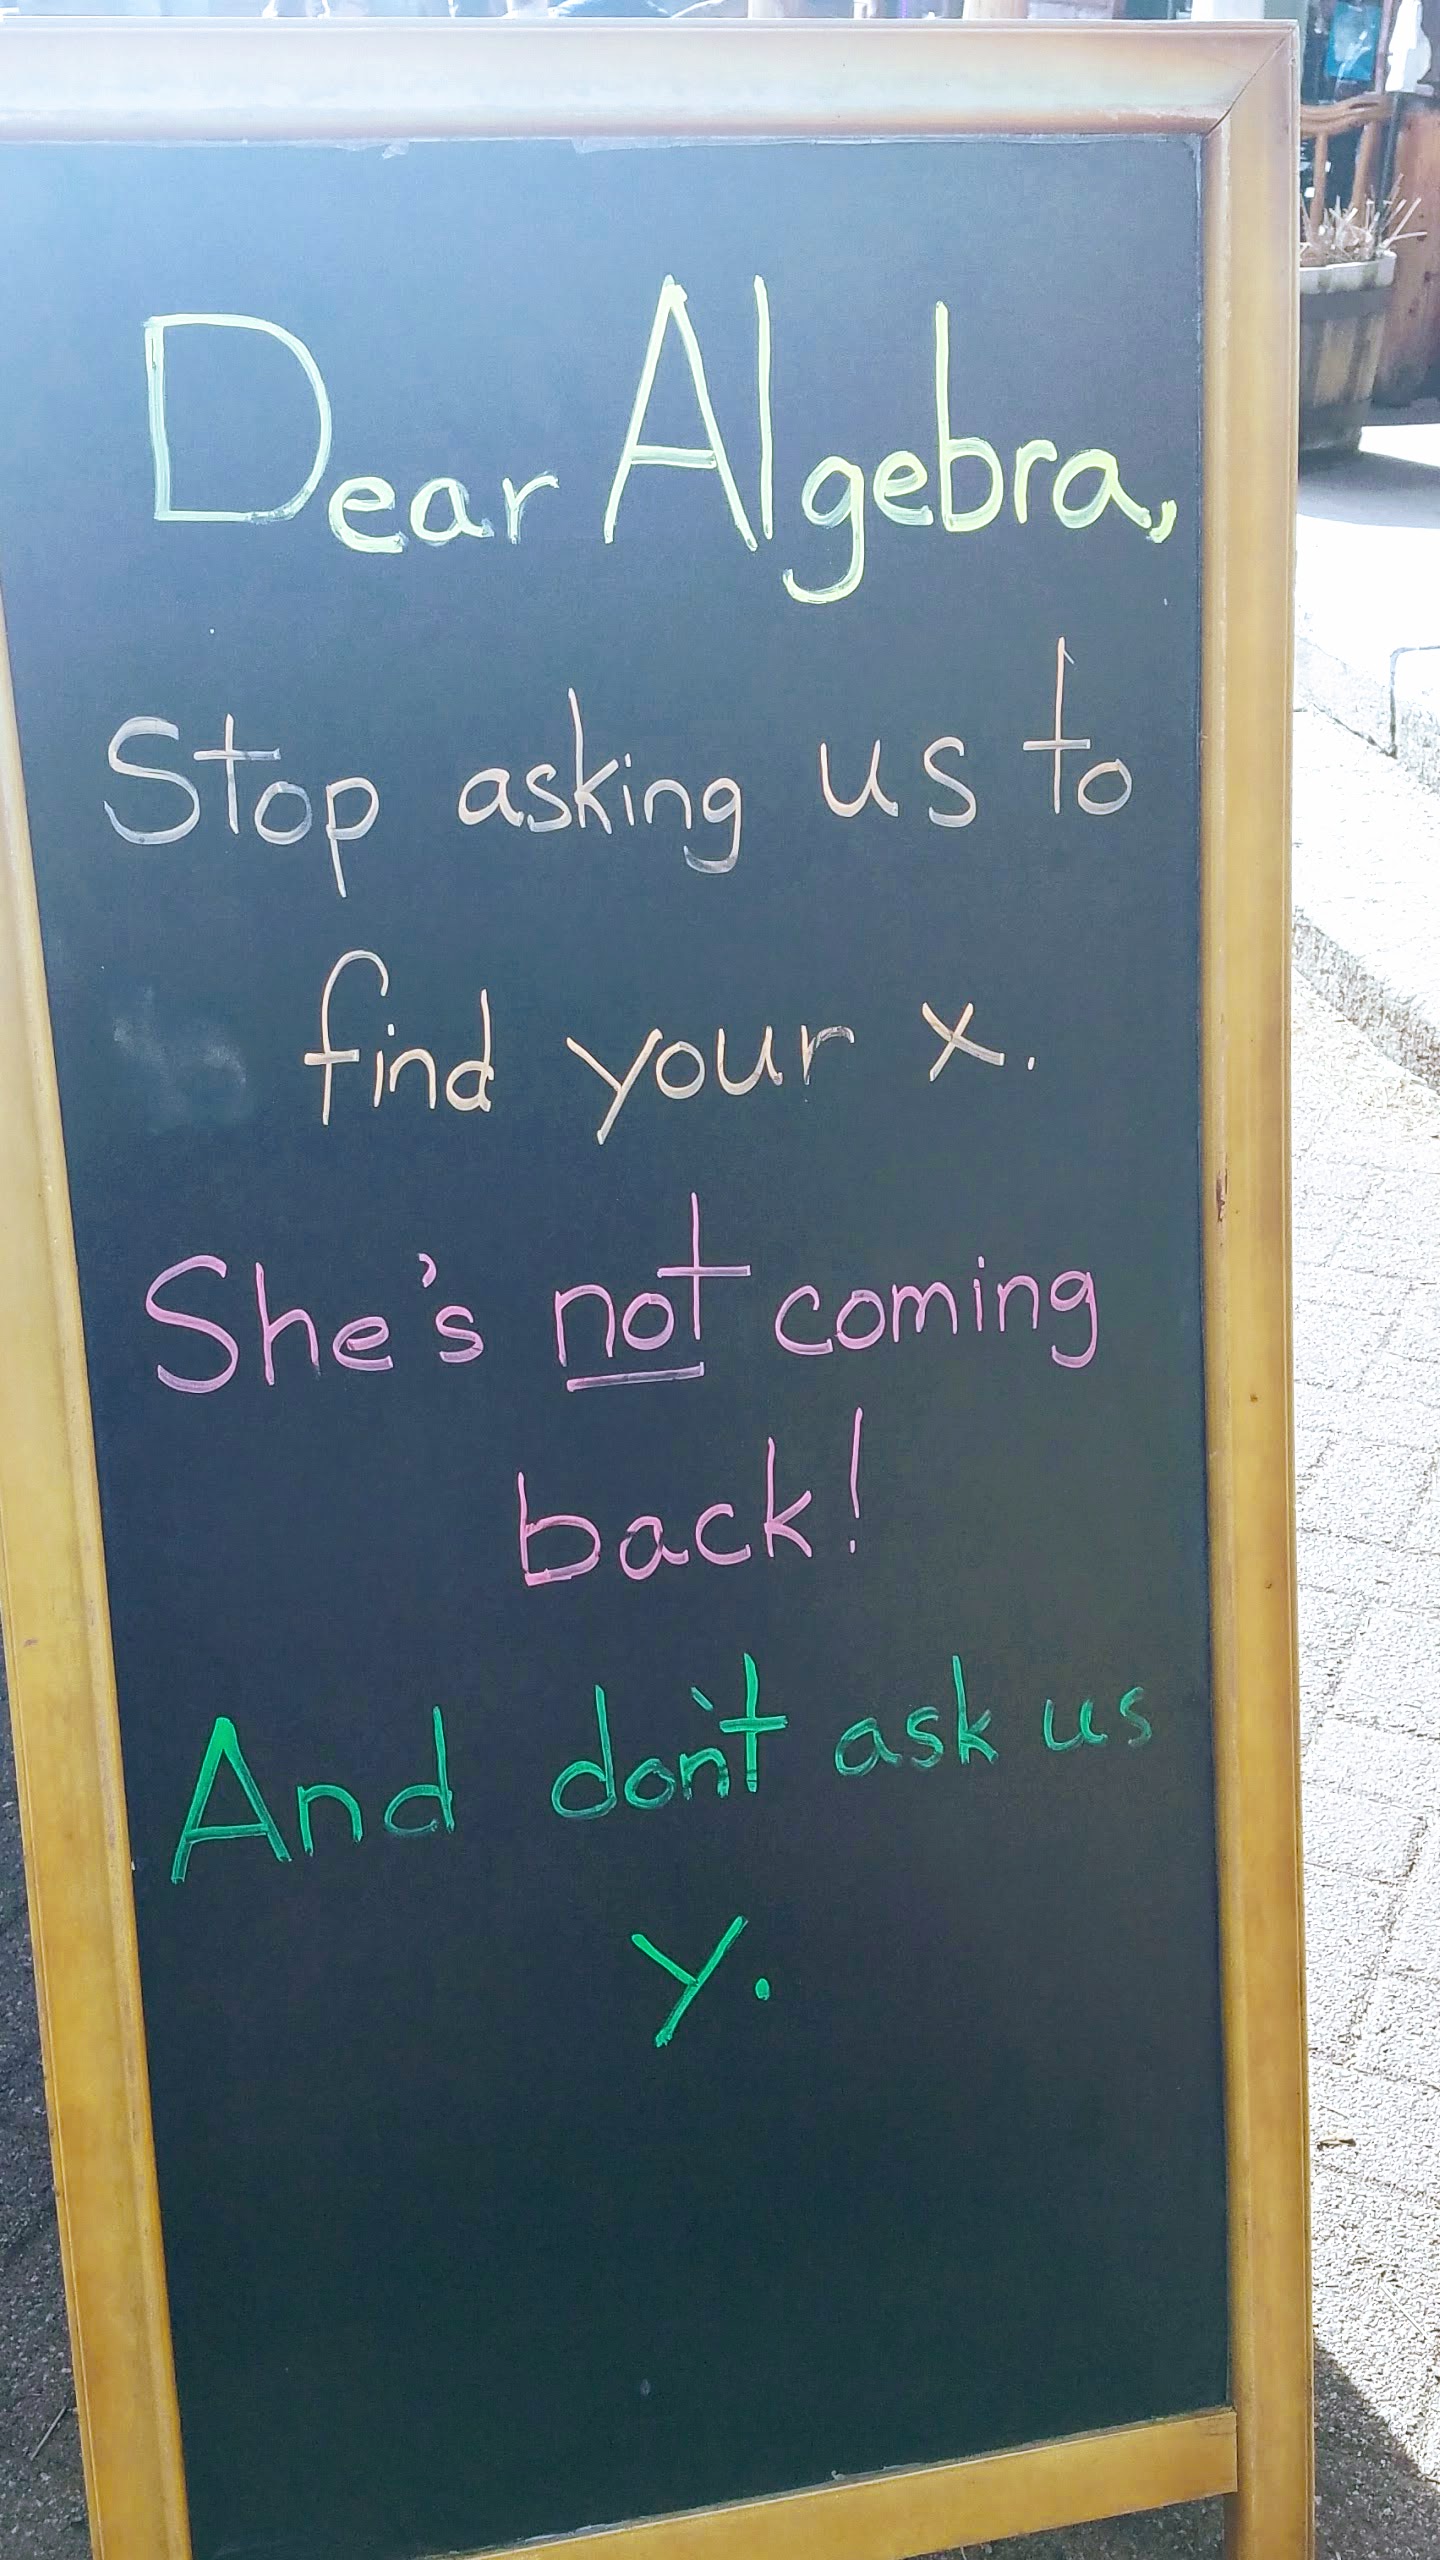 Dear Algebra,
Stop asking us to
find your x.
She's not coming
back!
And don't ask us
y.